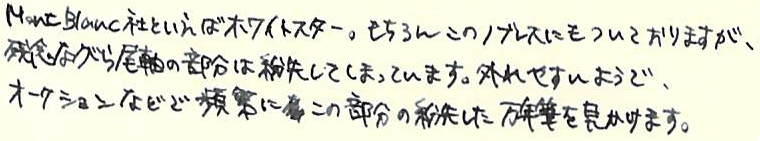 Mont Blanc社といえばホワイトスター。もちろんこのノブレスにもついておりますが、
残念ながら尾軸の部分は紛失してしまっています。外れやすいようで、
オークションなどで頻繁にこの部分の紛失した万年筆を見かけます。